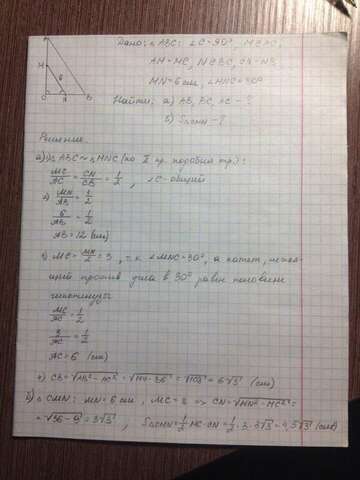 Дано: △ABC: ∠C=90°, M∈AC,
AM=MC, N∈BC, CN=NB,
MN=6см, ∠MNC=30°
Найти: а) AB, BC, AC - ?
б) S△CMN - ?
Решение.
а) 1) △ABC ~ △MNC (по II пр. подобия тр.):
MC/AC = CN/CB = 1/2, ∠C - общий
2) MN/AB = 1/2
6/AB = 1/2
AB = 12 (см)
3) MC = MN/2 = 3, т.к. ∠MNC=30°, а катет, лежа-
щий против угла в 30° равен половине
гипотенузы
MC/AC = 1/2
3/AC = 1/2
AC = 6 (см)
4) CB = √AB²-AC² = √144-36 = √108 = 6√3 (см)
б) △CMN: MN=6 см, MC=3 => CN=√MN²-MC² =
= √36-9 = 3√3, S△CMN = 1/2 · MC · CN = 1/2 · 3 · 3√3 = 4,5√3 (см²)